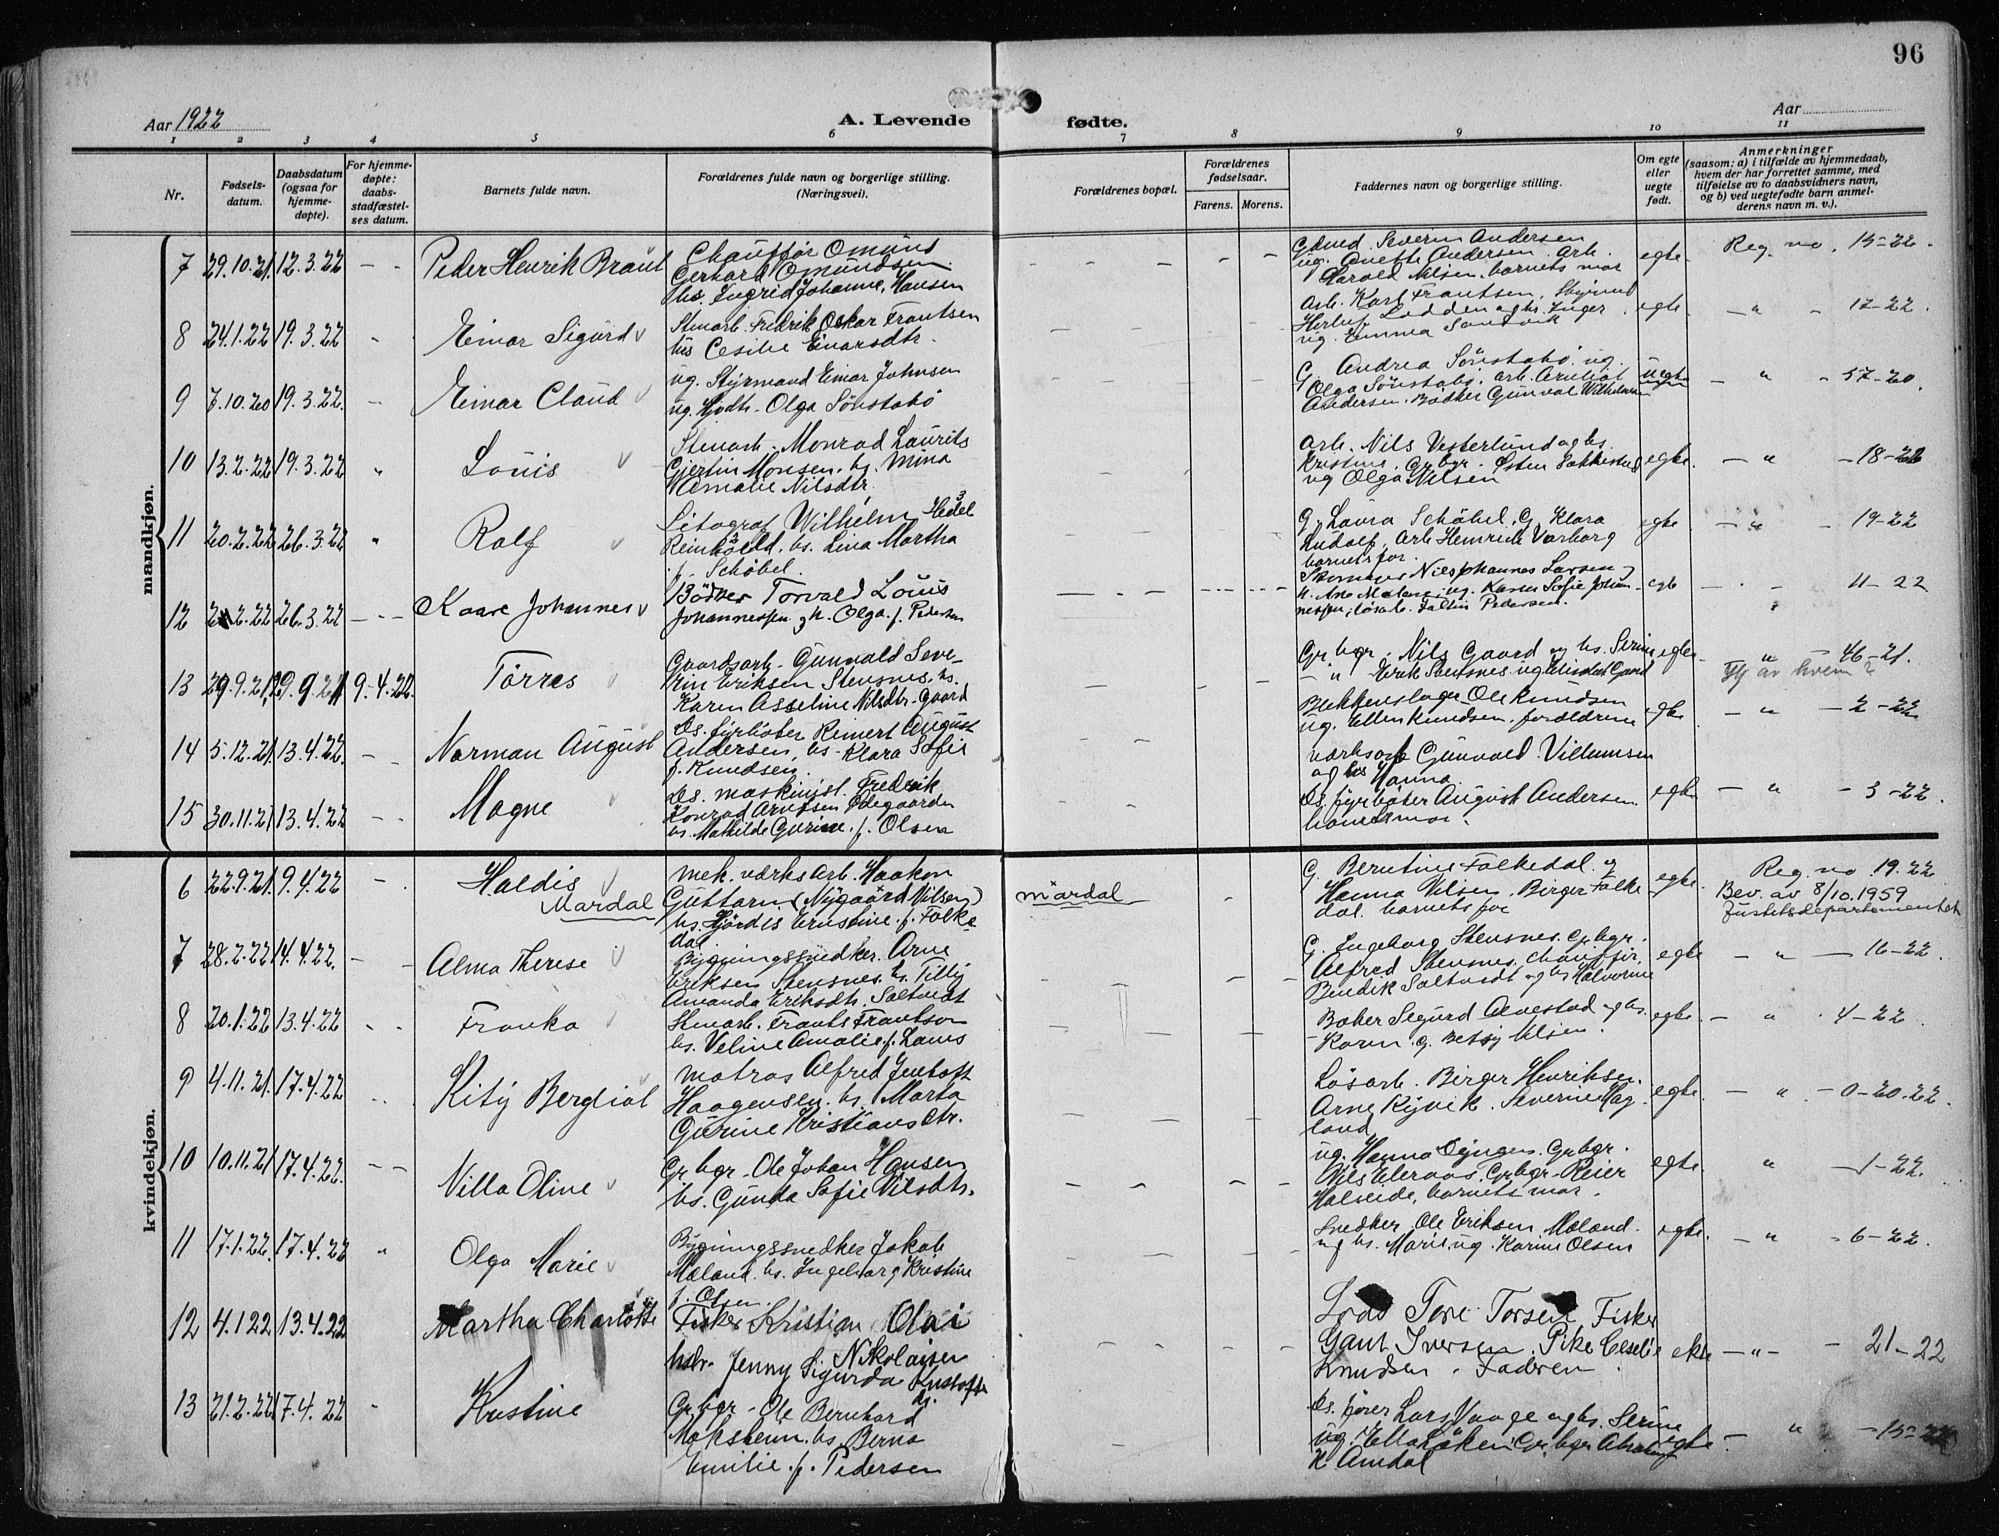 96
Aar 1922
A. Levende fødte.
Aar
1 2 3 4 5 6 7 8 9 10 11
Nr.
Fødsels-
datum.
Daabsdatum
(ogsaa for
hjemme-
døpte).
For hjemme-
døpte:
daabs-
stadfæstel-
ses datum.
Barnets fulde navn.
Forældrenes fulde navn og borgerlige stilling.
(Næringsvei).
Forældrenes bopæl.
Forældrenes
fødselsaar.
Farens. Morens.
Faddernes navn og borgerlige stilling.
Om egte
eller
uegte
født.
Anmerkninger
(saasom: a) i tilfælde av hjemmedaab,
hvem der har forrettet samme, med
tilføielse av to daabsvidners navn,
og b) ved uegtefødte barn anmel-
derens navn m. v.).
mandkjøn.
7 29.10.21. 12.3.22 - - Peder Henrik Braut
Chauffør Omund
Gerhard Omundsen
hs. Ingrid Johanne, Hansen
Severin Andersen
ug. Anette Andersen. Arb.
Harald Nilsen. barnets mor
egte Reg. no. 15-22.
8 24.1.22 19.3.22 Einar Sigurd
Stenarb. Fredrik Oskar Frantsen
hs Cesilie Einarsdtr.
Arb. Karl Frantsen,
Lodden og hs. Inger
ug. Emma Sandvik
egte - " - 12-22.
9 7.10.20 19.3.22. Einar Claud
ug. Styrmand Einar Johnsen
ug. Olga Sönstabö
G. Andrea Sönstabö. ug.
Olga Sönstabö. arb.
Andersen. Bødker Gunval
uegte - " - 57-20.
10 13.2.22 19.3.22 " Louis
Stenarb. Monrad Laurits
Gjertin Monsen. hs. Mina
Nilsdtr.
Arb. Nils Vesterlund og hs.
Kristine. Grbgr. Østen
ug Olga Nilsen
egte. - " - 18-22
11 20.2.22 26.3.22 " Rolf
Litograf Wilhelm
Reinholdt. hs. Lina Martha
f. Schöbel.
G. Laura Schöbel. G. Klara
Ludolf, Arb Heinrich Varborg
barnets far.
egte - " - 19-22
12 2.22 26.3.22 - - - Kaare Johannes
Bödker Torvald Louis
Johannessen og h. Olga f. Pedersen
Skomager Nils Johannes Larsen og
ug. Karen Sofie Johan-
nessen, løsarb. Pedersen.
egte - - 11-22
13 29.9.21 29.9.21 9-4.22. Törres
Gaardsarb. Gunvald Seve-
rin Eriksen Stensnes, hs.
Karen Asseline Nilsdtr. Gaard
Grbgr. Nils Gaard og hs. Serine
- " Erik Stensnes ug Gaard
egte - " - 46-21.
Hj av hvem?
14 5.12.21. 13.4.22. - - Norman August
Ds. fyrbøter Reinert August
Andersen, hs. Klara Sofie
f. Knudsen.
Blikkenslager Ole Knudsen
ug. Ellen Knudsen. forældrene
egte - " - 2-22
15 30.11.21 13.4.22 - - Magne
Ds. maskinist. Frederik
Konrad Arntsen Ødegaarden
hs. Mathilde Gurine. f. Olsen
Verksarb Gunvald Villumsen
og hs Hanna.
Ds. fyrbøter August Andersen.
egte - " - 3-22.
kvindekjøn.
6 22.9.21. 9.4.22 - - Haldis
Mårdal
mek. værks Arb. Haakon
Guttorm (Nygaard Nilsen)
hs. Hjördis Ernstine. f. Falke-
dal.
mårdal
G. Berntine Falkedal. og
Hanna Nilsen. Birger Falke
dal. barnets far
egte. Reg. no. 19.22
Bev. av 8/10.1959
Justitsdepartementet
7 28.2.22 14.4.22. - - Alma Therese
Bygningssnedker. Arne
Eriksen Stensnes, hs. Tilly
Amanda Eriksdtr. Saltvedt
G. Ingeborg Stensnes. Grbgr.
Alfred Stensnes, chauffør,
Bendik Saltvedt og hs Halvorine
egte - " - 16-22.
8 20.1.22 13.4.22 Franka
Stenarb. Frants Frantsen
hs. Veline Amalie. f. Laurs
Baker Sigurd Alvestad og hs.
Karen. g. Betsy Nilsen.
egte. - " 4-22.
9 4.11.21. 17.4.22 Kity Bergliot
Matros Alfred Jentoft
Haagensen. hs. Marta
Gurine Kristiansdtr.
Løsarb. Birger Henriksen.
Arne Kyvik. Severine Hag-
land
egte - " - 0-20.22
10 10.11.21 17.4.22. - - Villa Oline
Grbgr. Ole Johan Hansen
hs. Gunda Sofie Nilsdtr.
ug. Hanna Grbgr.
Nils Grbgr. Reier
Halseide, barnets mor.
egte " - 1-22
11 17.1.22. 17.4.22 " Olga Marie
Bygningssnedker Jakob
Mæland. hs. Ingeborg Kristine
f. Olsen.
Snedker Ole Eriksen Mæland.
og hs. Marie, ug. Karine Olsen
egte. - " - 6-22.
12 4.1.22 13.4.22 Martha Charlotte
Fisker Kristian Olai
Nikolaisen
hstr. Jenny Sigurda Kristoffer
ds.
Tore Torsen Fisker
Gaut Iversen. Pike Ceselie
Knudsen. Faderen.
ekte - " - 21-22
13 21.2.22 17.4.22 Kristine
Grbgr. Ole Bernhard
hs. Berna
Emilie f. Pedersen
Ds. fører Lars Vaage og hs. Serine
ug. Ella Løken, Grbgr
K Amdal
egte. " - 15-22